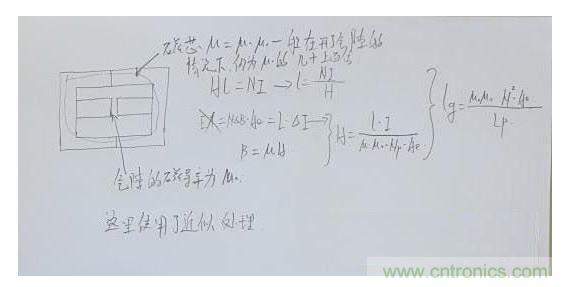 磁芯 μ = μ·μ₀ 一般在开了气隙的
情况下,仍为μ₀的几十上百倍
Hl = NI → l = NI/H
= N·ΔB·Ae = L·ΔI →
B = μH
H = L·I/(μ·μ₀·Np·Ae)
lg = μ₀μ₀ N²·Ae/Lp
气隙的磁导率为 μ₀
这里使用了近似处理
www.cntronics.com